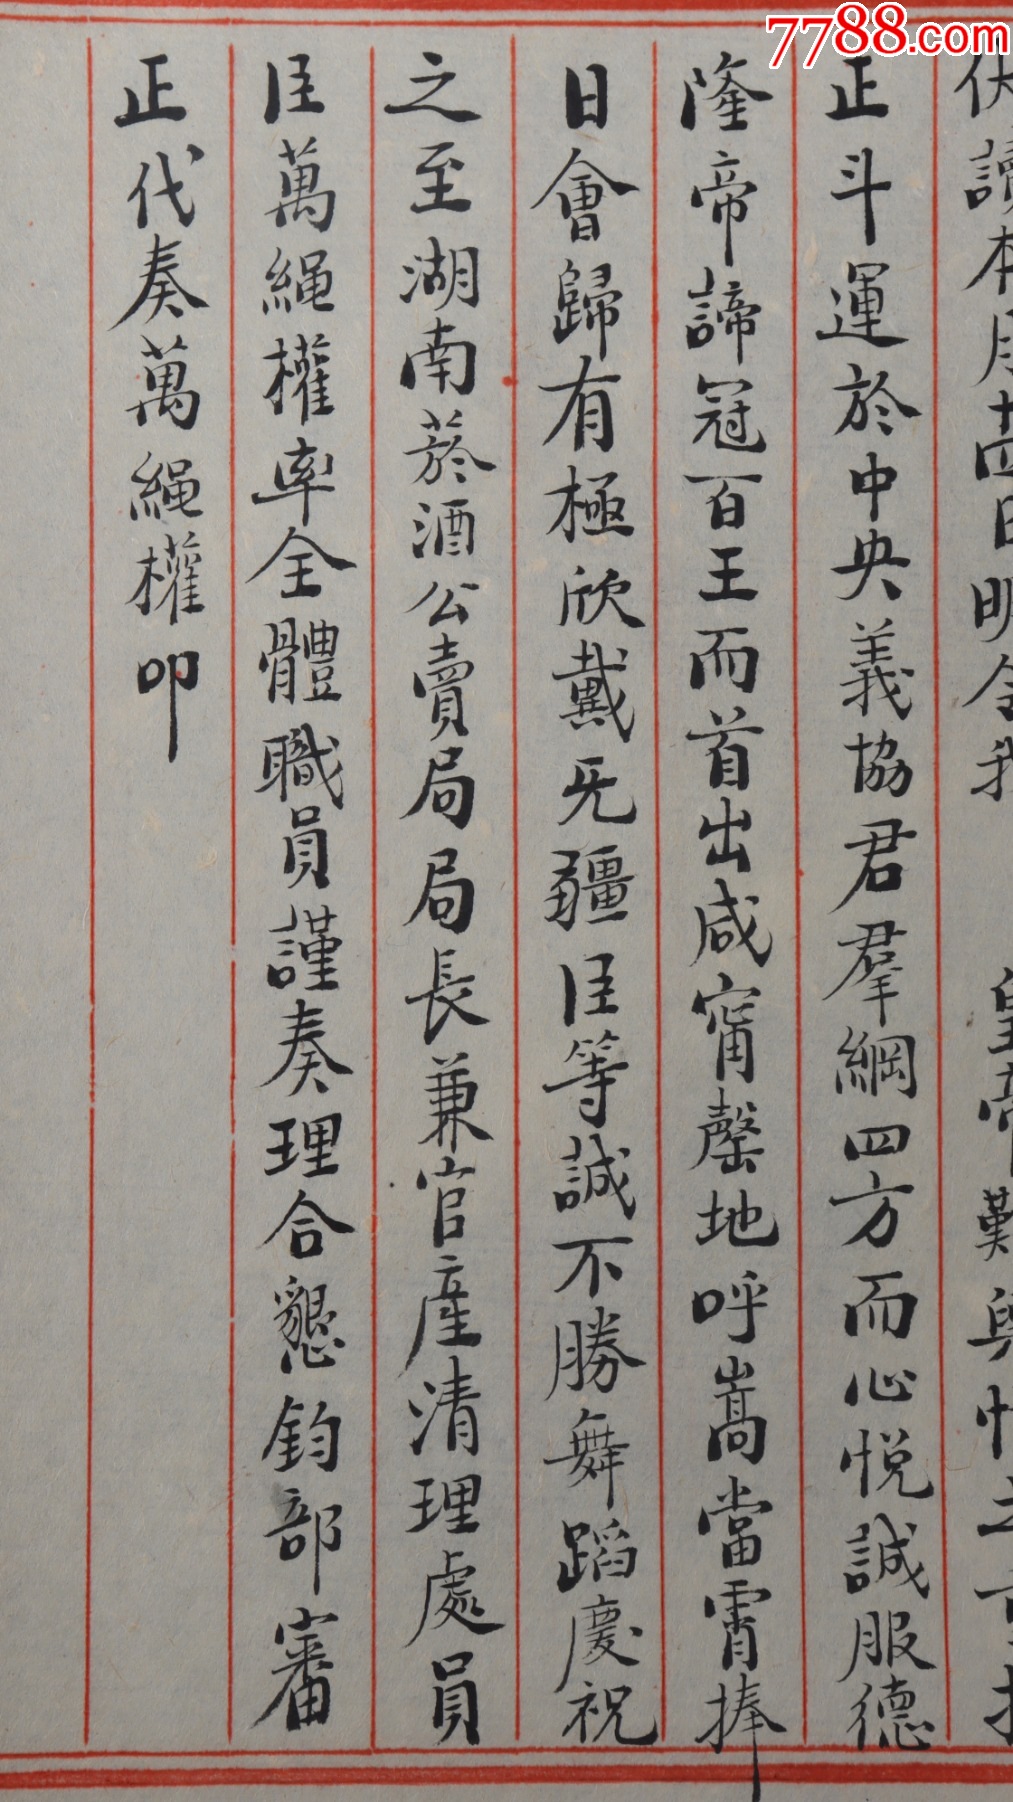 7788.com
伏讀本月十四日明令我　皇帝難輿情之
正斗運於中央義協君羣綱四方而心悅誠服德
隆帝諦冠百王而首出咸甯罄地呼嵩當霄捧
日會歸有極欣戴无疆臣等誠不勝舞蹈慶祝
之至湖南菸酒公賣局局長兼官產清理處員
臣萬繩權率全體職員謹奏理合懇鈞部審
正代奏萬繩權叩